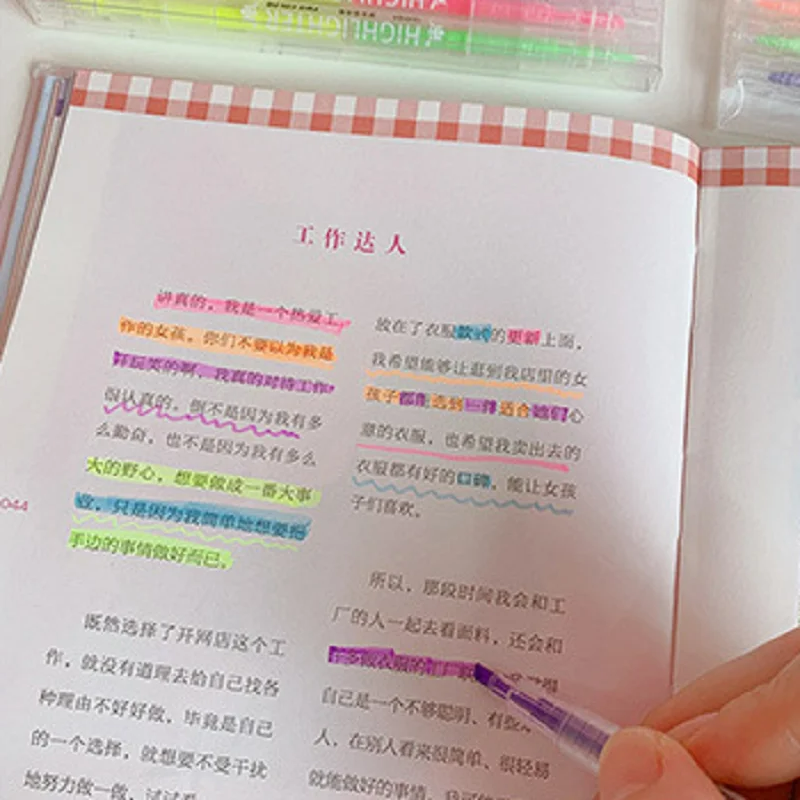 HIGHLIGHTER
HIGHLIGHTER
工作达人
讲真的，我是一个热爱工
作的女孩，你们不要以为我是
开玩笑的啊，我真的对待工作
很认真的，倒不是因为我有多
么勤奋，也不是因为我有多么
大的野心，想要做成一番大事
业，只是因为我简单地想要把
手边的事情做好而已。
044
既然选择了开网店这个工
作，就没有道理去给自己找各
种理由不好好做，毕竟是自己
的一个选择，就想要不受干扰
地努力做一做，试试看
放在了衣服款式的更新上面，
我希望能够让逛到我店里的女
孩子都能选到一件适合她们心
意的衣服，也希望我卖出去的
衣服都有好的口碑，能让女孩
子们喜欢。
所以，那段时间我会和工
厂的人一起去看面料，还会和
做衣服的
自己是一个不够聪明、有些
人，在别人看来很简单、很轻易
就能做好的事情，我可能